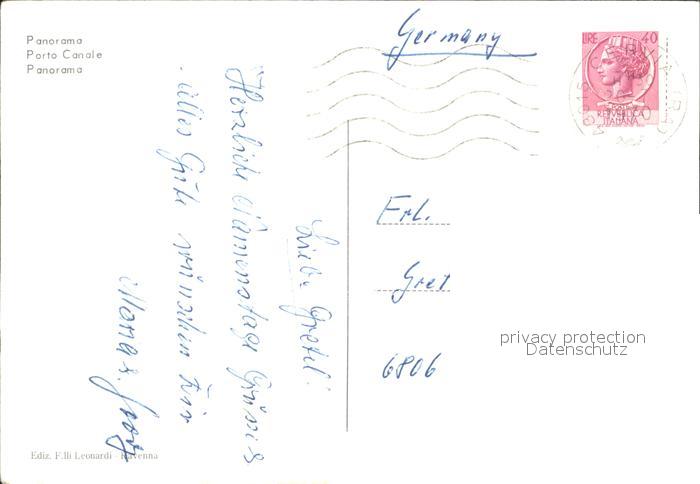 Panorama
Porto Canale
Panorama
Germany
LIRE 40
REPVBBLICA
ITALIANA
Liebe Gretel!
Herzliche Namenstags Grüsse &
alles Gute wünschen Dir
Frl.
Gret
6806
privacy protection
Datenschutz
Ediz. F.lli Leonardi - Ravenna